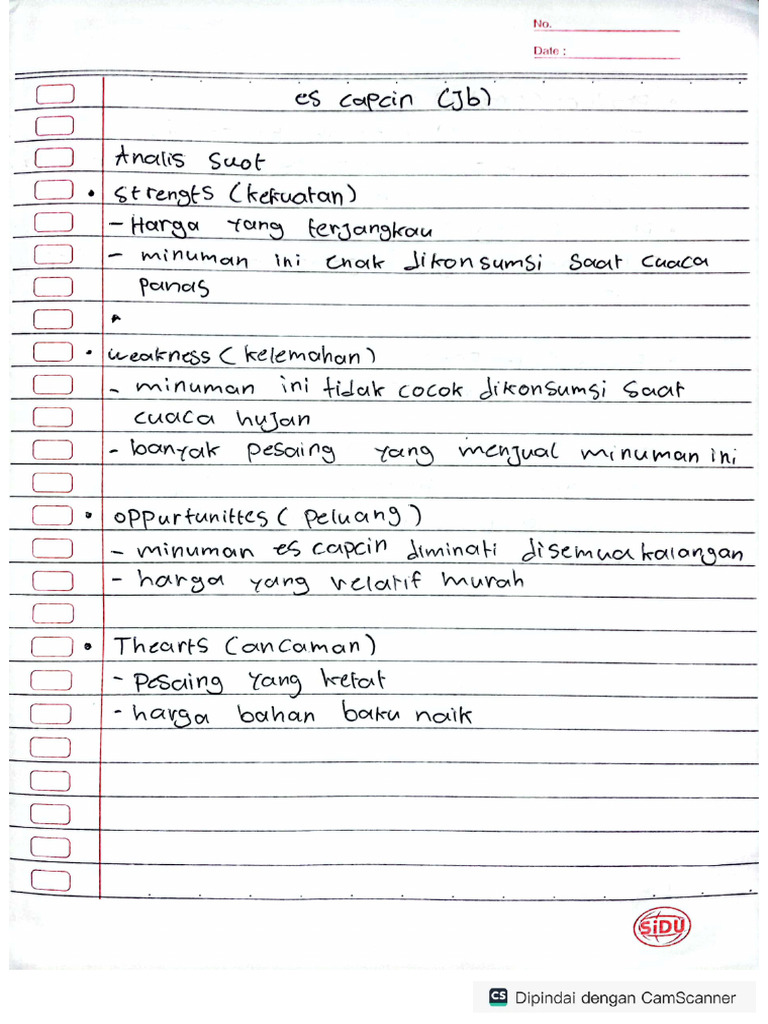 No.
Date :
es capcin (Jb)
Analis swot
• Strengts (kekuatan)
- Harga yang terjangkau
- minuman ini enak dikonsumsi saat cuaca
panas
• weakness (kelemahan)
- minuman ini tidak cocok dikonsumsi saat
cuaca hujan
- banyak pesaing yang menjual minuman ini
• oppurtunittes (peluang)
- minuman es capcin diminati disemua kalangan
- harga yang relatif murah
• Thearts (ancaman)
- pesaing yang ketat
- harga bahan baku naik
SiDU
CS Dipindai dengan CamScanner